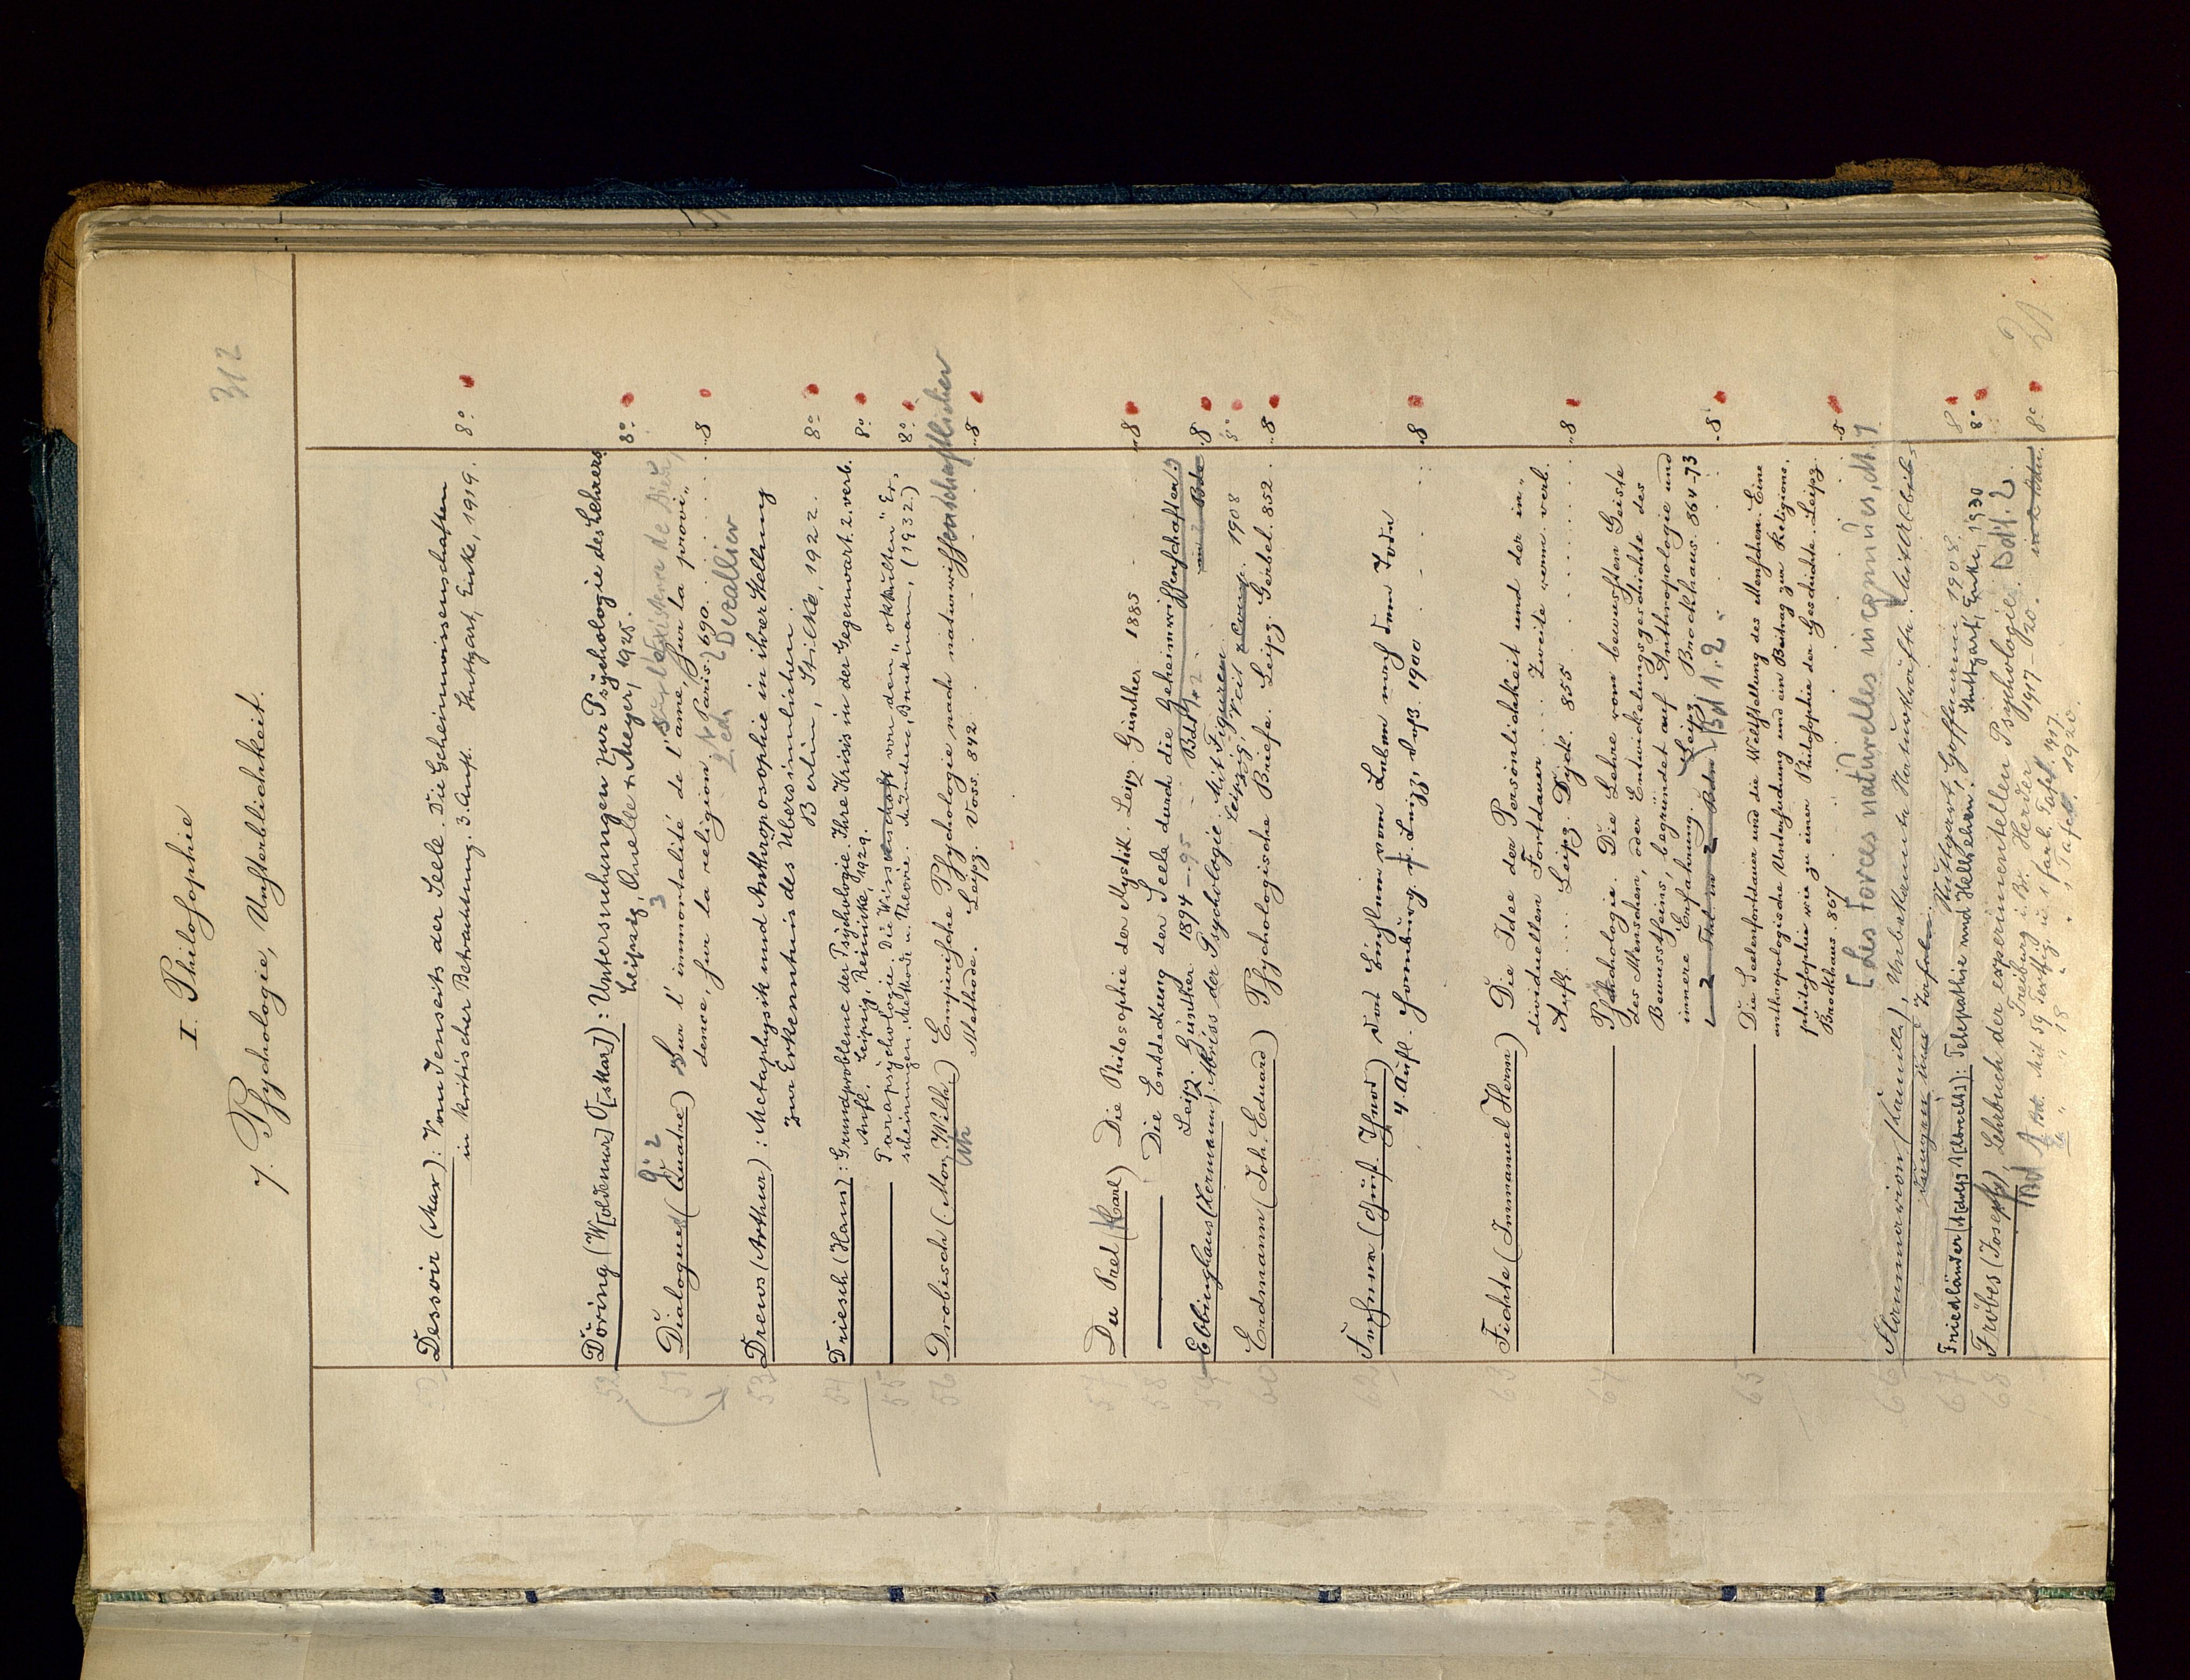 I. Philosophie
312
7. Psychologie, Unsterblichkeit.
Dessoir (Max): Vom Jenseits der Seele. Die Geheimwissenschaften
in kritischer Betrachtung. 3. Aufl. Stuttgart, Enke, 1919. 8°
52 Döring (W[oldemar] O[skar]): Untersuchungen zur Psychologie des Lehrers
Leipzig, Quelle & Meyer, 1925. 8°
51 Dialogues (Quatre) Sur l'existence de Dieu,
l'immortalité de l'ame, sur la provi„
dence, sur la religion. Paris. 690. 8
2. ed. Dezallier
53 Drews (Arthur): Metaphysik und Anthroposophie in ihrer Stellung
zur Erkenntnis des Übersinnlichen.
Berlin, Stilke, 1922. 8°
54 Driesch (Hans): Grundprobleme der Psychologie. Ihre Krisis in der Gegenwart. 2. verb.
Aufl. Leipzig, Reinicke, 1929. 8°
55 Parapsychologie. Die Wissenschaft von den „okkulten" Er„
scheinungen. Methode u. Theorie. München, Bruckmann, (1932) 8°
56 Drobisch (Mor. Wilh.) Empirische Psychologie nach naturwissenschaftlicher
Methode. Leipz. Voss. 842 8
57 Du Prel (Carl) Die Philosophie der Mystik. Leipz. Günther. 1885 8
58 Die Entdeckung der Seele durch die Geheimwissenschaften.
Leipz. Günther. 1894-95 Bd 1, 2 8
59 Ebbinghaus (Hermann) Abriss der Psychologie. Mit Figuren
Leipzig, Veit & Comp. 1908 8°
60 Erdmann (Joh. Eduard) Psychologische Briefe. Leipz. Geibel. 852. 8
62 Fechner (Gust. Theod) Das Büchlein vom Leben nach dem Tode
4. Aufl. Hamburg & Leipzig, Voß. 1900 8
63 Fichte (Immanuel Herm) Die Idee der Persönlichkeit und der in„
dividuellen Fortdauer. Zweite verm. verb.
Aufl. Leipz. Dyck. 855 8
64 Psychologie. Die Lehre vom bewussten Geiste
des Menschen, oder Entwickelungsgeschichte des
Bewusstseins, begründet auf Anthropologie und
innere Erfahrung. Leipz Brockhaus. 864-73
2 Thl in 2 Bdn Bd 1. 2 8
65 Die Seelenfortdauer und die Weltstellung des Menschen. Eine
anthropologische Untersuchung und ein Beitrag zur Religions„
philosophie wie zu einer Philosophie der Geschichte. Leipz
Brockhaus. 867 8
[Les Forces naturelles inconnues, dt.]
66 Flammarion (Kamille), Unbekannte Naturkräfte.
Stuttgart, Hoffmann 1908. 8
67 Friedländer (A[dolf] A[lbrecht]): Telepathie und Hellsehen. Stuttgart, Enke, 1930 8°
68 Fröbes (Joseph), Lehrbuch der experimentellen Psychologie. Bd 1. 2.
Freiburg i. Br. Herder 1917-920. in 2 Bdn. 8°
Bd 1 Mit 59 Textfig. u. 1 farb. Tafel. 1917.
" 2 " 18 " " 1 Tafel. 1920.
21